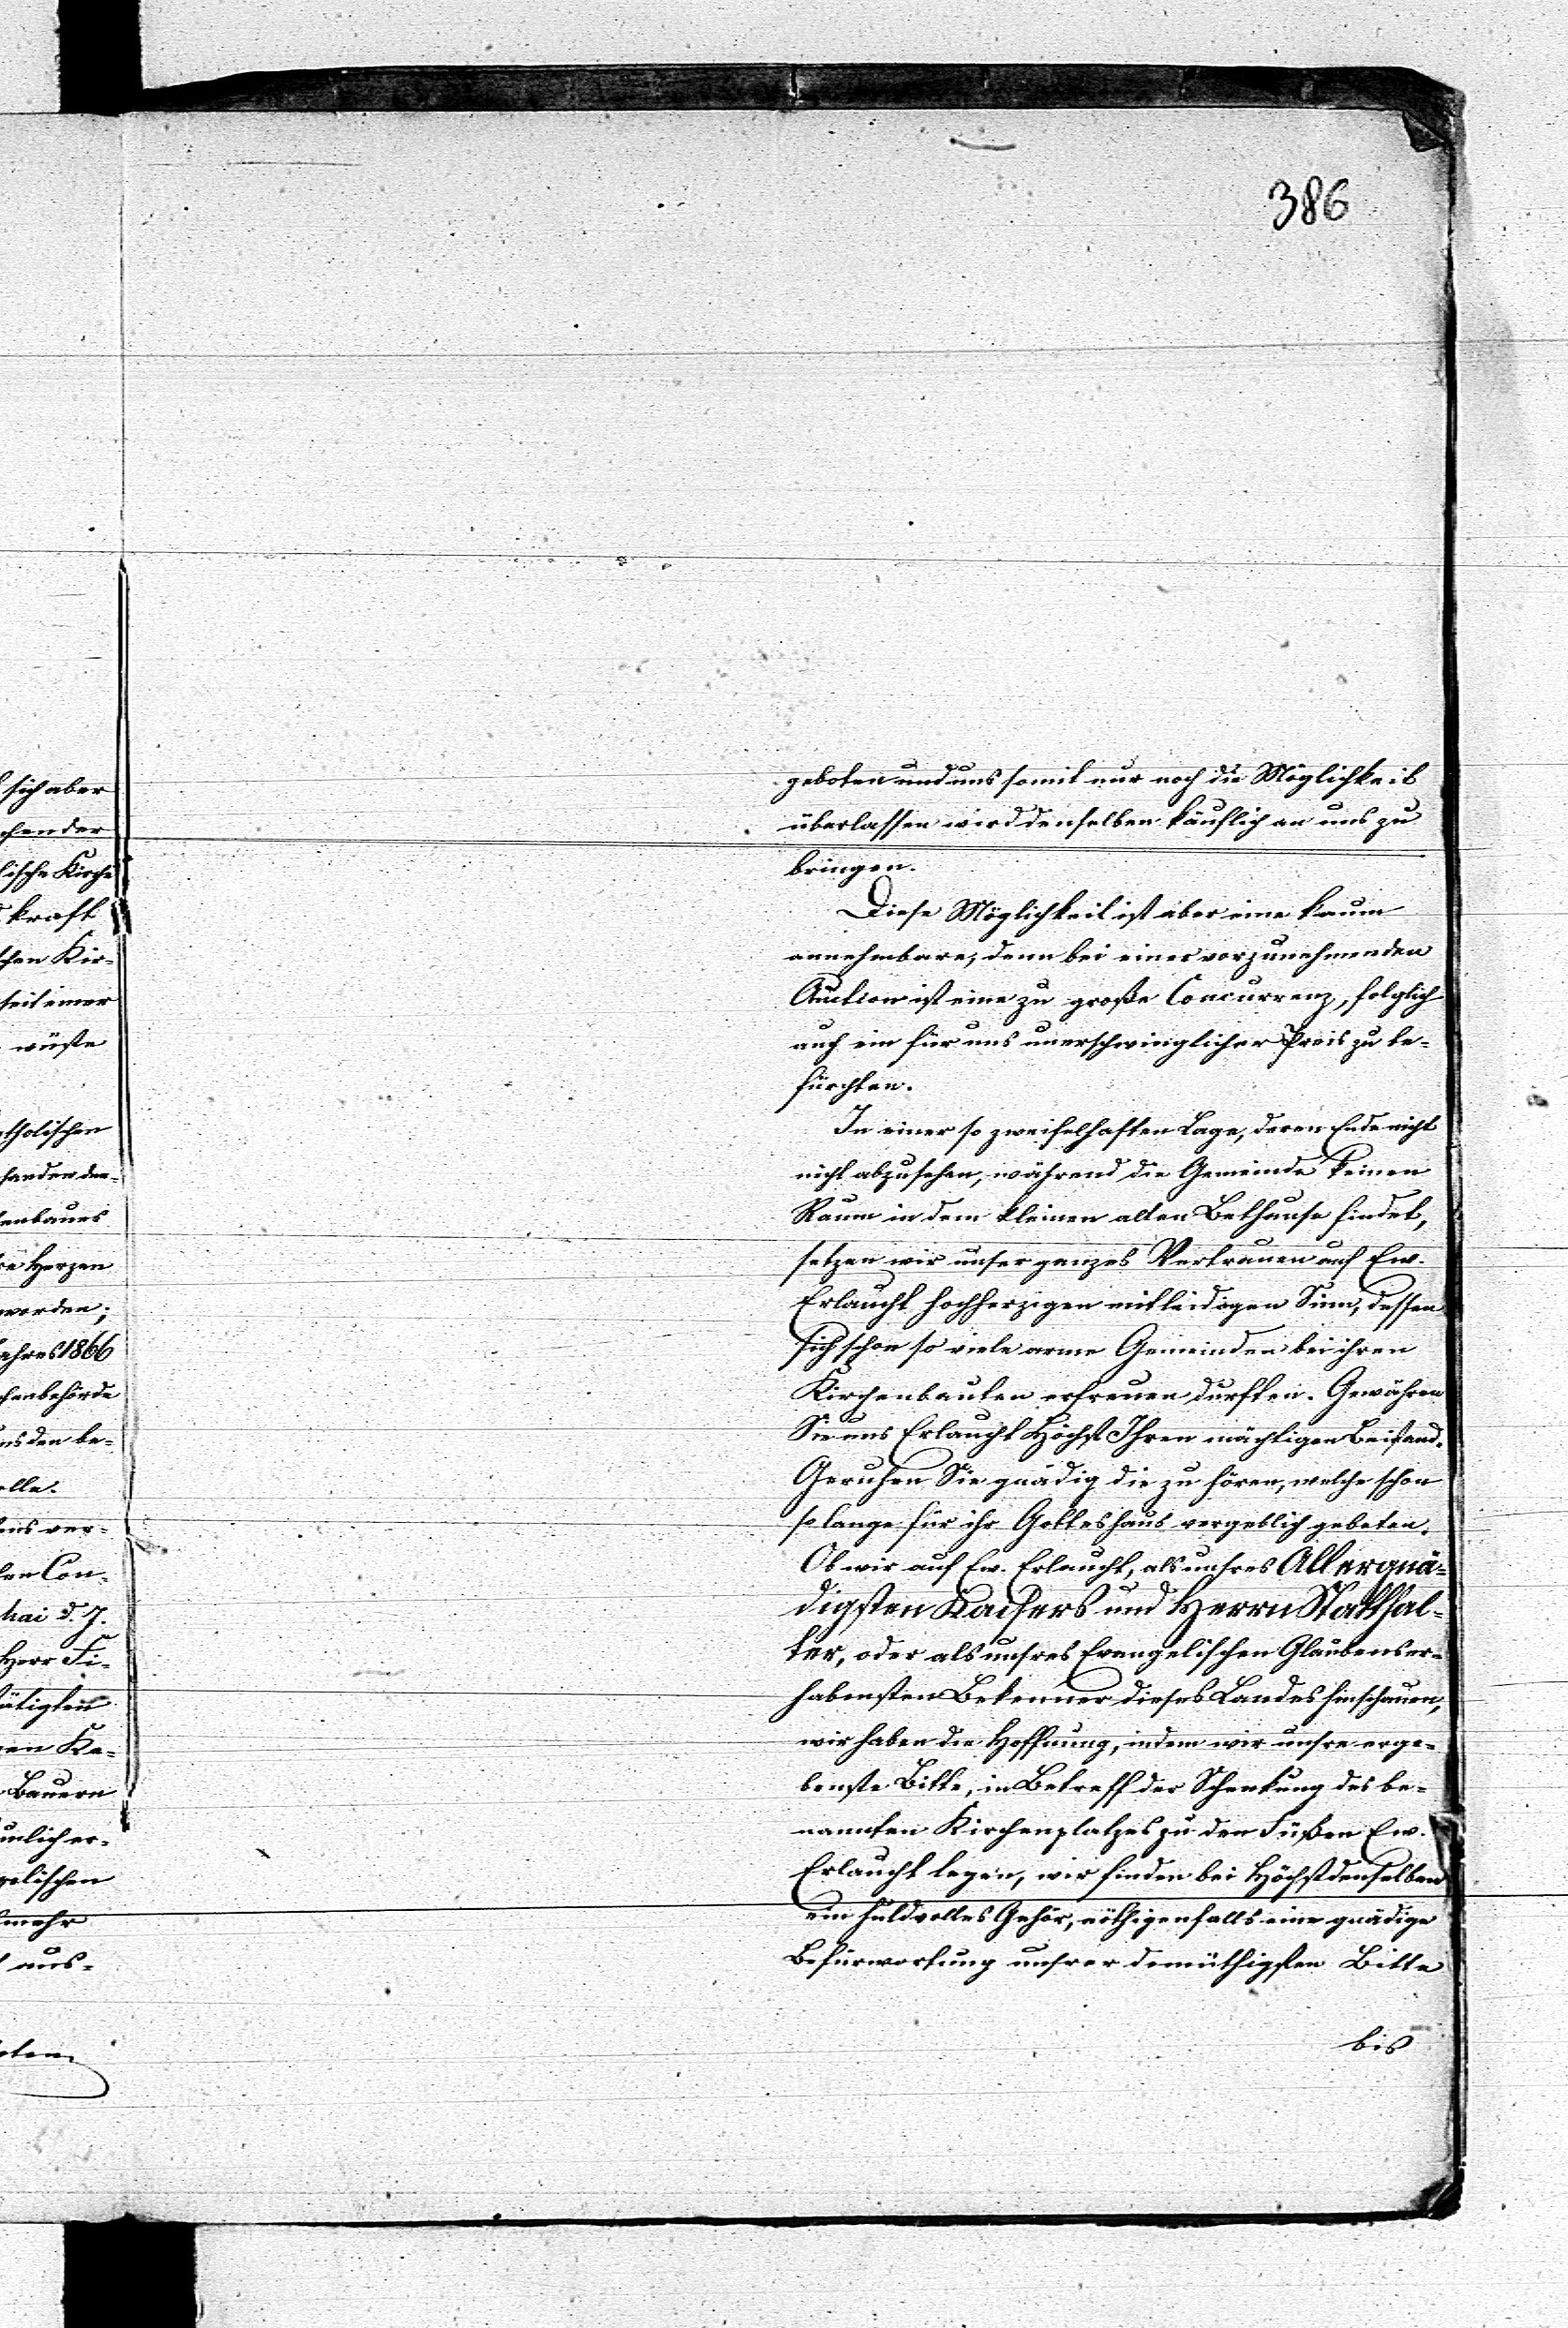 386
geboten und uns somit nur noch die Möglichkeit
überlassen wird denselben käuflich an uns zu
bringen.
Diese Möglichkeit ist aber eine kaum
annehmbare, denn bei einer vorzunehmenden
Auction ist eine zu große Concurrenz, folglich
auch ein für uns unerschwinglicher Preis zu be-
fürchten.
In einer so zweifelhaften Lage, deren Ende nicht
nicht abzusehen, während die Gemeinde keinen
Raum in dem kleinen alten Bethause findet,
setzen wir unser ganzes Vertrauen auf Ew.
Erlaucht hochherzigen mitleidigen Sinn, dessen
sich schon so viele arme Gemeinden bei ihren
Kirchenbauten erfreuen durften. Gewähren
Sie uns Erlaucht Höchst Ihren mächtigen Beistand.
Geruhen Sie gnädig die zu hören, welche schon
so lange für ihr Gotteshaus vergeblich gebeten.
Ob wir auf Ew. Erlaucht, als unsres Allergnä-
digsten Kaisers und Herrn Statthal-
ter, oder als unsres Evangelischen Glaubens er-
habensten Bekenner dieses Landes hinschauen,
wir haben die Hoffnung, indem wir unsre erge-
benste Bitte, in Betreff der Schenkung des be-
nannten Kirchenplatzes zu den Füßen Ew.
Erlaucht legen, wir finden bei Höchstdenselben
ein huldvolles Gehör, nöthigenfalls eine gnädige
Befürwortung unsrer demüthigsten Bitte
bis
sich aber
chen der
lische Kirche
kraft
chen Kir-
seit einer
wüste
atholischen
handenden-
enbaues
re Herzen
worden;
ahres 1866
chenbehörde
uns den be-
elle.
ens ver-
len Con-
Mai d. J.
Herr Fi-
tätigten
en Ka-
Bauern
umlich er-
gelischen
mehr
aus-
oten